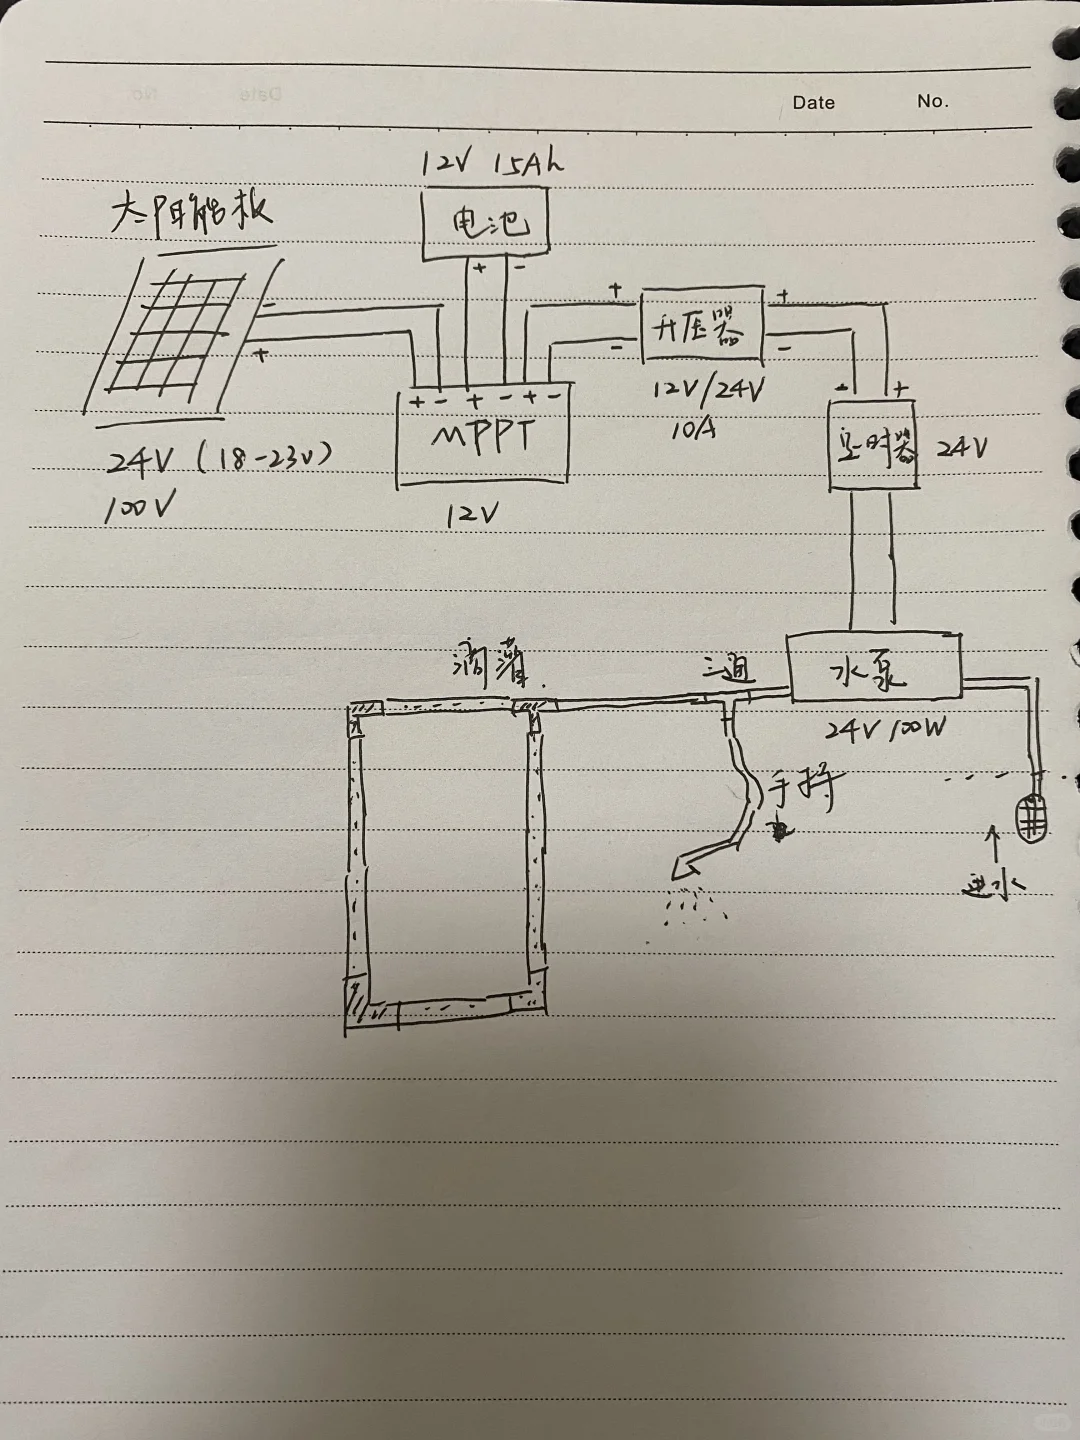 Date No.
12V 15Ah
太阳能板
电池
+ -
-
+
+ - + - + -
MPPT
12V
24V (18-23V)
100V
+
-
升压器
+
-
12V/24V
10A
- +
定时器
24V
滴灌
三通
水泵
24V 100W
手持
进水